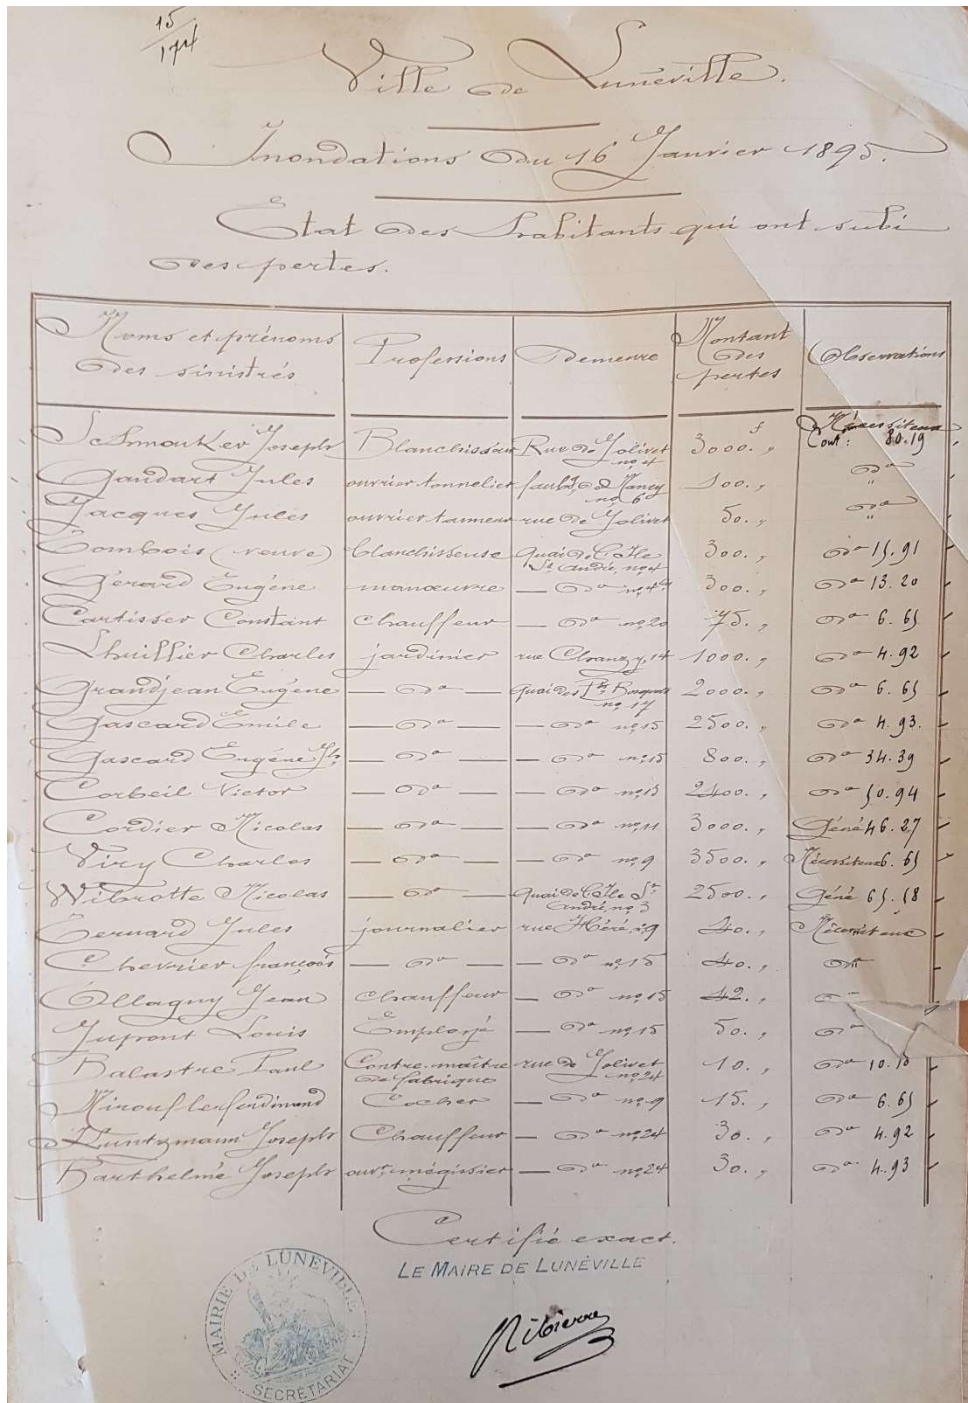 15
174
Ville de Lunéville.
Inondations du 16 Janvier 1895.
Etat des habitants qui ont subi
des pertes.
Noms et prénoms des sinistrés Professions Demeure Montant des pertes Observations
Schmouker Joseph Blanchisseur Rue de Jolivet no 4 3000. f Nécessiteux Cont: 80.19
Gaudart Jules ouvrier tonnelier faubg de Nancy no 6 100. do
Jacques Jules ouvrier tanneur rue de Jolivet 50. do
(veuve) blanchisseuse Quai de l'Ile St André, no 4 300. do 15.91
Gérard Eugène manœuvre do no 4 300. do 13.20
Cartisser Constant chauffeur do no 20 75. do 6.65
Lhuillier Charles jardinier rue Chanzy, 14 1000. do 4.92
Grandjean Eugène do Quai des Pts Bosquets no 17 2000. do 6.65
Gascard Emile do do no 15 2500. do 4.93.
Gascard Eugène fls do do no 15 800. do 34.39
Corbeil Victor do do no 13 2400. do 50.94
Cordier Nicolas do do no 11 3000. Gêné 46.27
Viry Charles do do no 9 3500. Nécessiteux 6.65
Wibrotte Nicolas do Quai de l'Ile St André, no 3 2500. Gêné 65.58
Bernard Jules journalier rue Héré, 9 40. Nécessiteux
Chevrier françois do do no 15 40. do
Ollagny Jean chauffeur do no 15 42.
Jupront Louis Employé do no 15 50. do
Balastre Paul Contre-maître de fabrique rue de Jolivet no 24 10. do 10.18
ferdinand Cocher do no 9 15. do 6.65
Kuntzmann Joseph Chauffeur do no 24 30. do 4.92
Barthelmé Joseph ouvr. mégissier do no 24 30. do 4.93
Certifié exact.
LE MAIRE DE LUNÉVILLE
Ribierre
MAIRIE DE LUNÉVILLE
SECRÉTARIAT